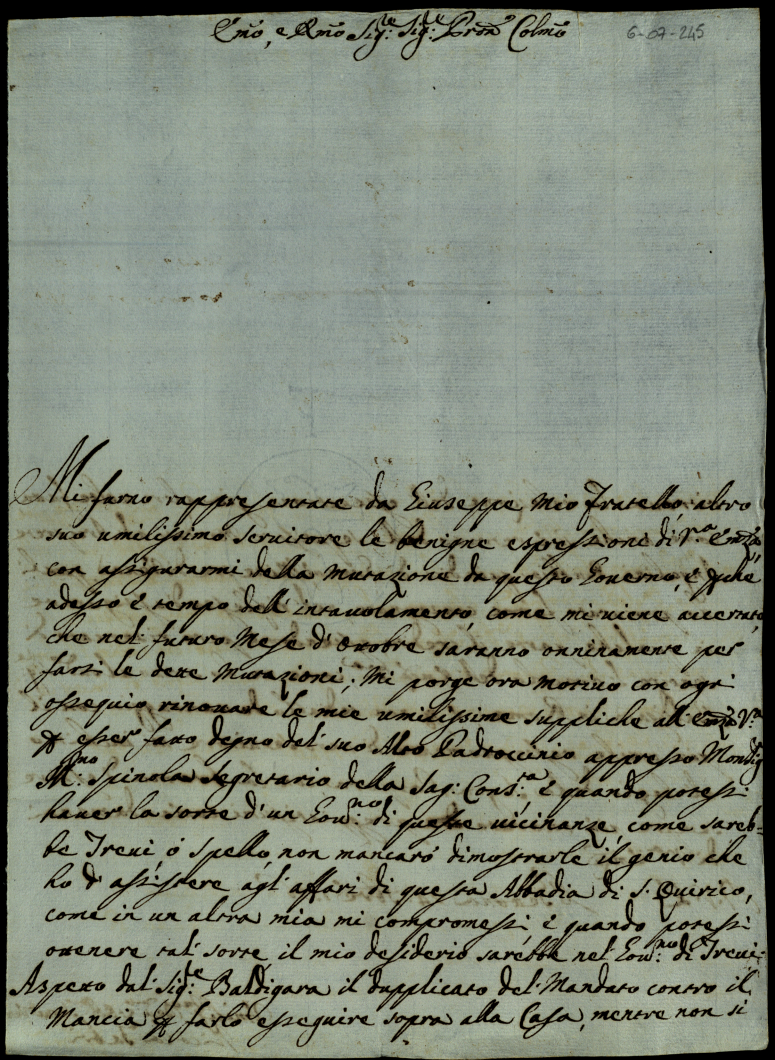 Emo, e Rmo Sig:re Sig:re Pron Colmo
6-07-245
Mi furno rappresentate da Giuseppe mio fratello, altro
suo umilissimo servitore le benigne espressioni di V.ra Emza,
con assigurarmi della mutazione da questo Governo, è perche
adesso è tempo dell'intavolamento, come mi viene accertato,
che nel futuro Mese d'Ottobre saranno onninamente per
farsi le dette mutazioni; Mi porge ora motivo con ogni
ossequio rinovare le mie umilissime suppliche all'Emza V.ra
per esser fatto degno del suo Alto Padroccinio appresso Monsig:
R:mo Spinola Segretario della Sag: Cons:ta, è quando potessi
haver la sorte d'un Gov:no di queste vicinanze, come sareb=
be Trevi, ò Spello, non mancarò dimostrarle il genio che
ho d'assistere agl'affari di questa Abbadia di S. Quirico,
come in un altra mia mi compromessi, è quando potessi
ottenere tal sorte il mio desiderio sarebbe nel Gov:no di Trevi.
Aspetto dal Sig:re Baldigara il dupplicato del Mandato contro il
Mancia per farlo esseguire sopra alla Casa, mentre non si